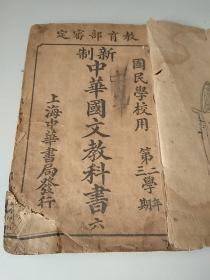 教育部審定
國民學校用
第二學年
第三學期
新制
中華國文教科書 六
上海中華書局發行